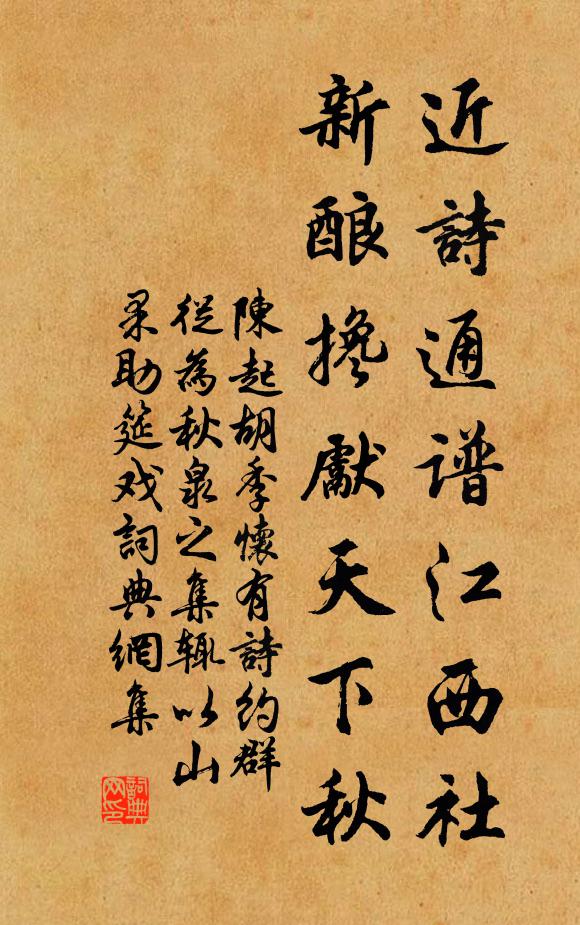 近詩通谱江西社
新酿搀獻天下秋
陳起胡季懷有詩約群
從為秋泉之集輙以山
果助筵戏詞典網集
詞典网印